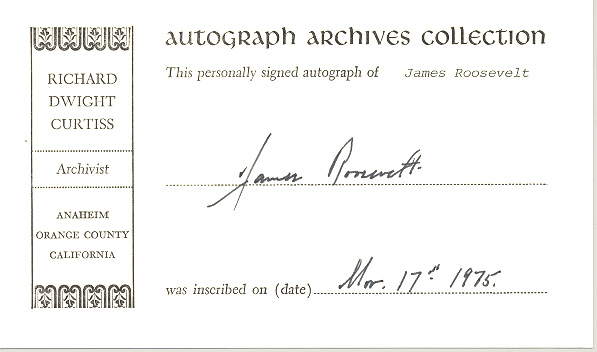 RICHARD
DWIGHT
CURTISS
Archivist
ANAHEIM
ORANGE COUNTY
CALIFORNIA
AUTOGRAPH ARCHIVES COLLECTION
This personally signed autograph of James Roosevelt
James Roosevelt
was inscribed on (date) Nov. 17th 1975.